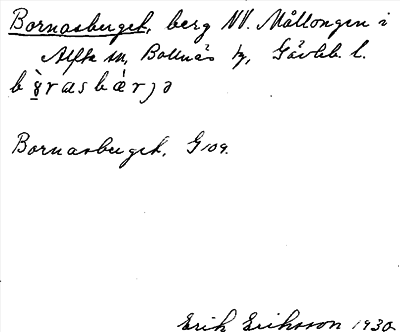 Bornasberget, berg NV. Mållongen i
Alfta sn, Bollnäs tg, Gävleb. l.
Bornasberget, G 109.
Erik Eriksson 1930